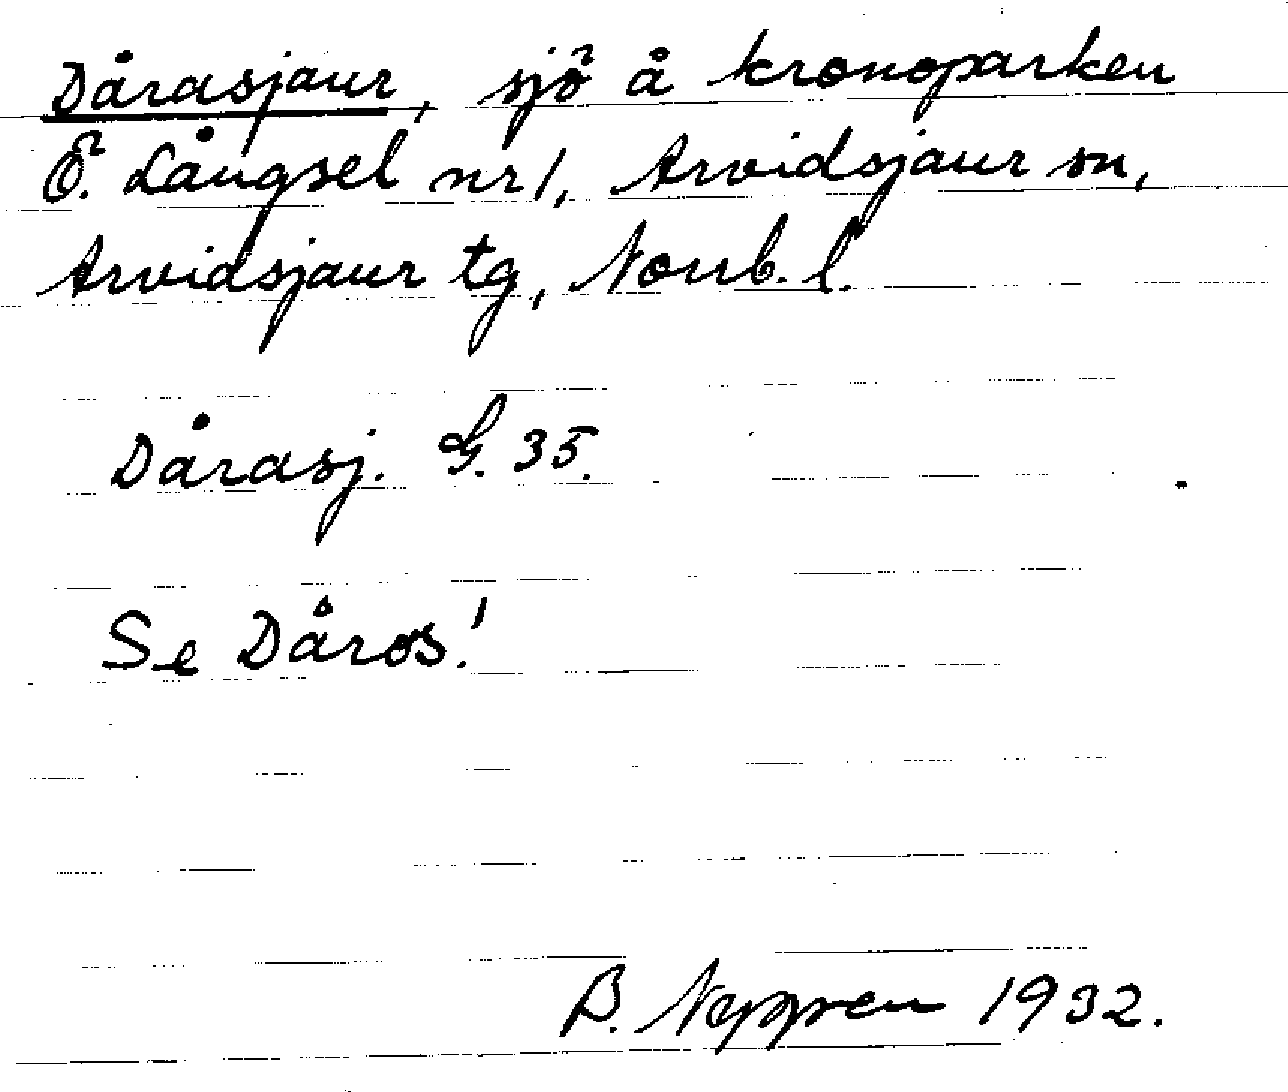 Dårasjaur, sjö å kronoparken
Ö. Långsel nr 1, Arvidsjaur sn,
Arvidsjaur tg, Norrb. l.
Dårasj. G. 35.
Se Dåros!
B. 1932.